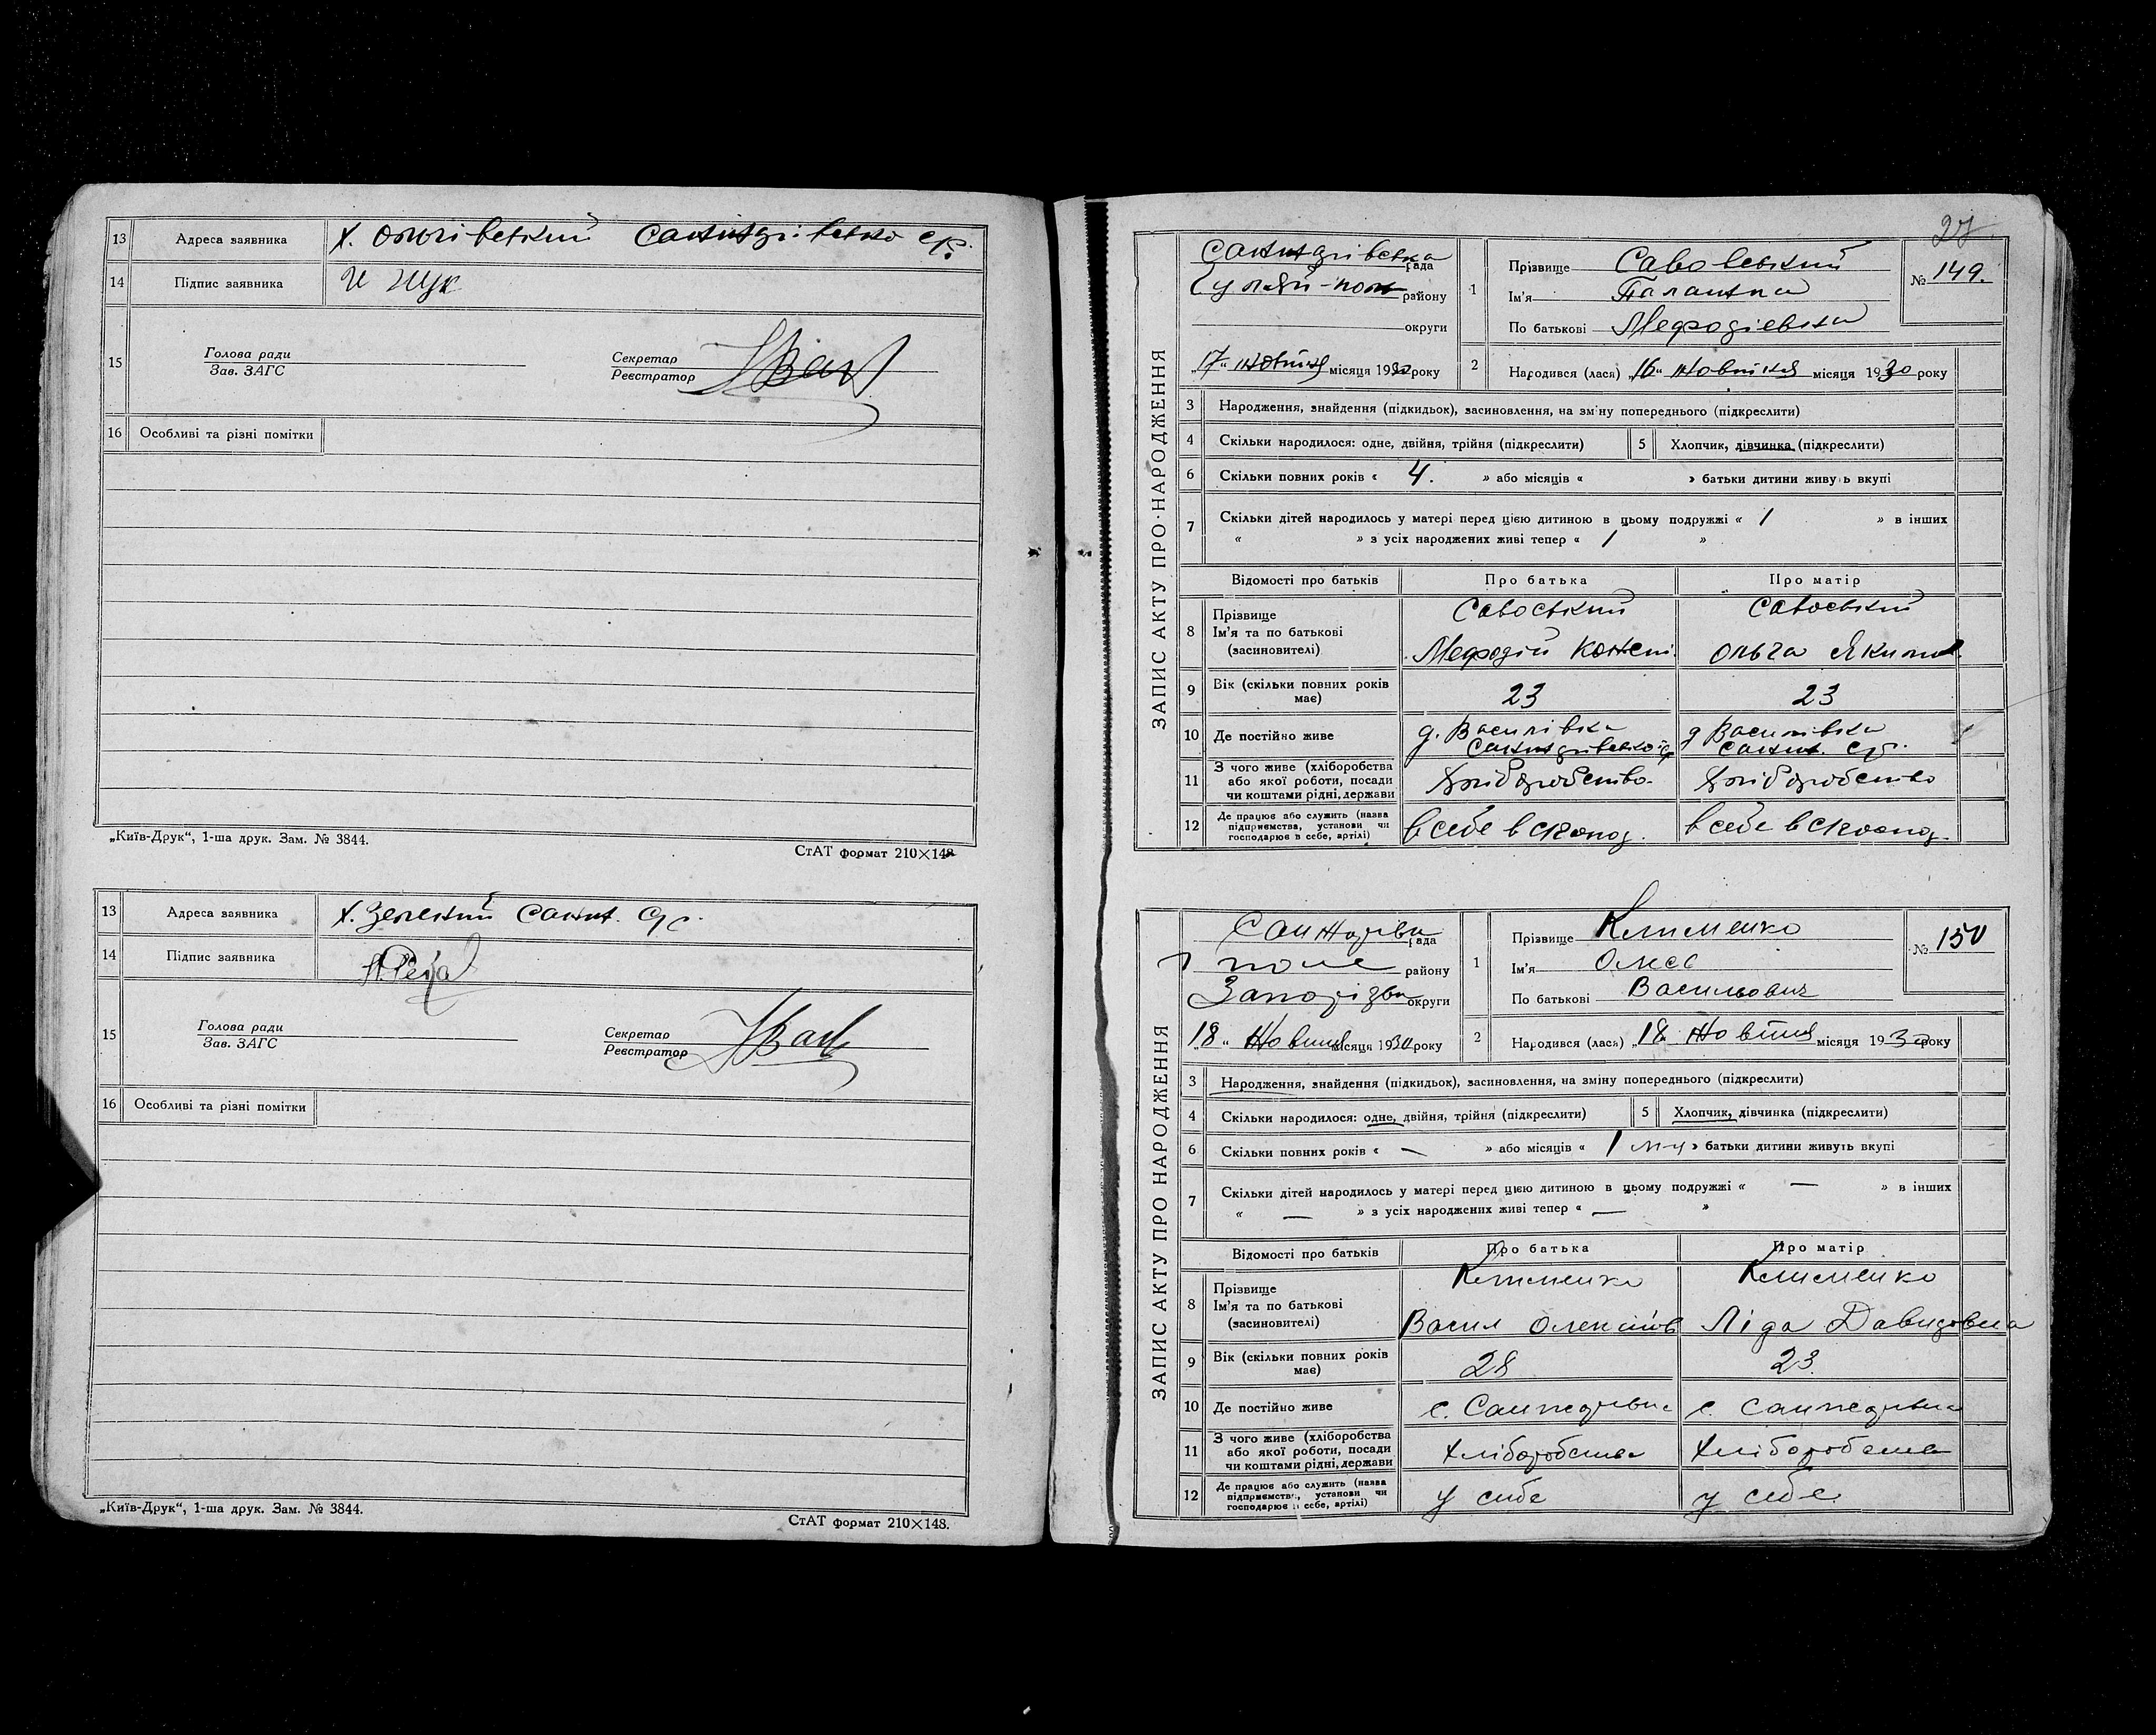 13 Адреса заявника х.
14 Підпис заявника Жук
15 Голова ради
Зав. ЗАГС
Секретар
Реєстратор
16 Особливі та різні помітки
„Київ-Друк“, 1-ша друк. Зам. № 3844.
СтАТ формат 210×148
13 Адреса заявника х. Зелений Санж. с/р.
14 Підпис заявника
15 Голова ради
Зав. ЗАГС
Секретар
Реєстратор
16 Особливі та різні помітки
„Київ-Друк“, 1-ша друк. Зам. № 3844.
СтАТ формат 210×148.
27
ЗАПИС АКТУ ПРО НАРОДЖЕННЯ
рада
Гуляй-пол району
округи
„17“ жовтня місяця 1930 року
1 Прізвище
Ім'я
По батькові Мефодіевна
№ 149.
2 Народився (лася) „16“ жовтня місяця 1930 року
3 Народження, знайдення (підкидьок), засиновлення, на зміну попереднього (підкреслити)
4 Скільки народилося: одне, двійня, трійня (підкреслити) 5 Хлопчик, дівчинка (підкреслити)
6 Скільки повних років « 4. » або місяців « » батьки дитини живуть вкупі
7 Скільки дітей народилось у матері перед цією дитиною в цьому подружжі « 1 » в інших
« » з усіх народжених живі тепер « 1 »
Відомості про батьків Про батька Про матір
8 Прізвище Савоський Савоський
Ім'я та по батькові
(засновителі) Мефодій Ольга Яким.
9 Вік (скільки повних років має) 23 23
10 Де постійно живе д. Василівка д Василівка
Санж. с/р.
11 З чого живе (хліборобства або якої роботи, посади чи коштами рідні, держави Хліборобство Хліборобство
12 Де працює або служить (назва підприємства, установи чи господарює в себе, артілі) в себе в в себе в
ЗАПИС АКТУ ПРО НАРОДЖЕННЯ
рада
поле району
округи
„18“ Жовтня місяця 1930 року
1 Прізвище Клименко
Ім'я
По батькові Васильович
№ 150
2 Народився (лася) „18“ Жовтня місяця 1930 року
3 Народження, знайдення (підкидьок), засиновлення, на зміну попереднього (підкреслити)
4 Скільки народилося: одне, двійня, трійня (підкреслити) 5 Хлопчик, дівчинка (підкреслити)
6 Скільки повних років « — » або місяців « 1 м-ц » батьки дитини живуть вкупі
7 Скільки дітей народилось у матері перед цією дитиною в цьому подружжі « — » в інших
« — » з усіх народжених живі тепер « — »
Відомості про батьків Про батька Про матір
8 Прізвище Клименко Клименко
Ім'я та по батькові
(засиновителі) Васил Ліда Давидовна
9 Вік (скільки повних років має) 28 23.
10 Де постійно живе с. с.
11 З чого живе (хліборобства або якої роботи, посади чи коштами рідні, держави Хліборобства Хліборобства
12 Де працює або служить (назва підприємства, установи чи господарює в себе, артілі) у себе у себе